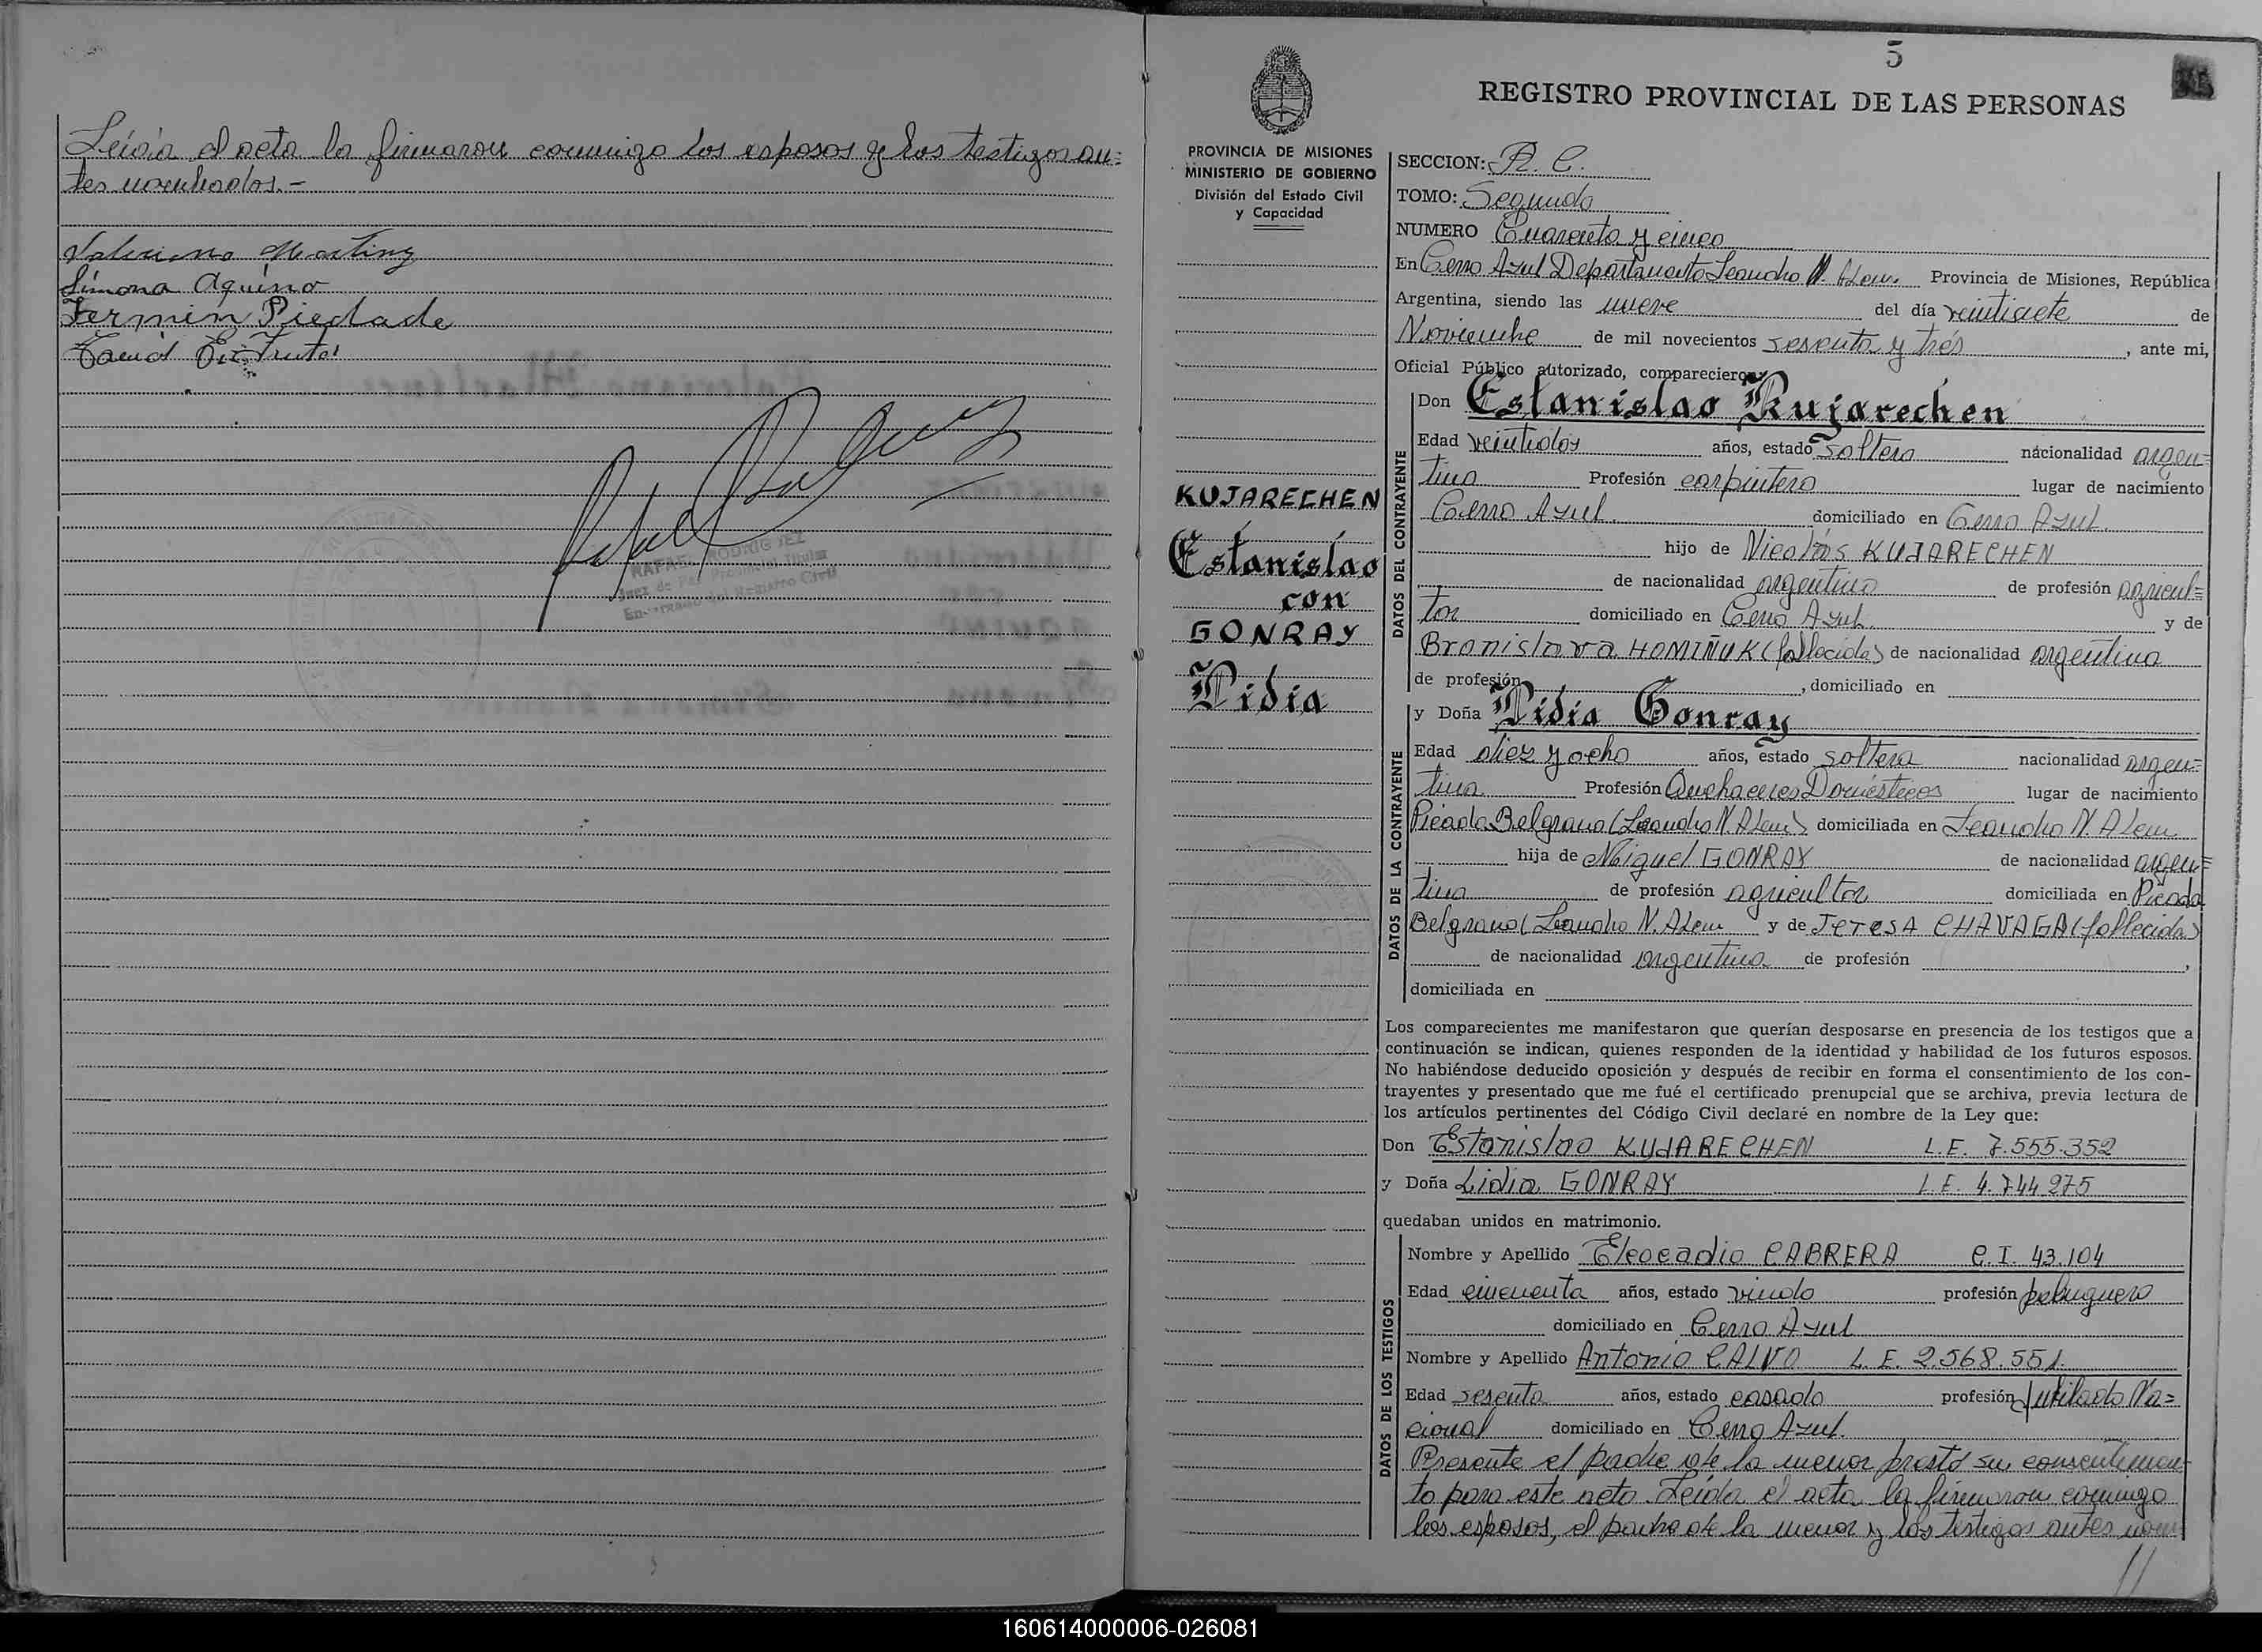 Leida el acta la firmaron conmigo los esposos y los testigos an=
tes nombrados.-
Valeriano Martinez
Simona Aquino
Fermin Piedade
RAFAEL RODRIGUEZ
Juez de Paz Provincial Titular
Encargado del Registro Civil
5
REGISTRO PROVINCIAL DE LAS PERSONAS
PROVINCIA DE MISIONES
MINISTERIO DE GOBIERNO
División del Estado Civil
y Capacidad
KUJARECHEN
Estanislao
con
GONRAY
Lidia
SECCION: R. C.
TOMO: Segundo
NUMERO Cuarenta y cinco
En Cerro Azul Departamento Leandro N. Alem. Provincia de Misiones, República
Argentina, siendo las nueve del día veintisiete de
Noviembre de mil novecientos sesenta y trés, ante mi,
Oficial Público autorizado, comparecieron:
DATOS DEL CONTRAYENTE
Don Estanislao Kujarechen
Edad veintidos años, estado soltero nacionalidad argen=
tina Profesión carpintero lugar de nacimiento
Cerro Azul. domiciliado en Cerro Azul.
hijo de Nicolás KUJARECHEN
de nacionalidad argentino de profesión agricul=
tor domiciliado en Cerro Azul. y de
Bronislava HOMIÑUK (fallecida) de nacionalidad argentina
de profesión , domiciliado en
DATOS DE LA CONTRAYENTE
y Doña Lidia Gonray
Edad diez y ocho años, estado soltera nacionalidad argen=
tina Profesión Quehaceres Domésticos lugar de nacimiento
Picada Belgrano (Leandro N Alem) domiciliada en Leandro N. Alem
hija de Miguel GONRAY de nacionalidad argen=
tina de profesión agricultor domiciliada en Picada
Belgrano (Leandro N. Alem y de TERESA CHAVAGA (fallecida)
de nacionalidad argentina de profesión ,
domiciliada en
Los comparecientes me manifestaron que querían desposarse en presencia de los testigos que a
continuación se indican, quienes responden de la identidad y habilidad de los futuros esposos.
No habiéndose deducido oposición y después de recibir en forma el consentimiento de los con-
trayentes y presentado que me fué el certificado prenupcial que se archiva, previa lectura de
los artículos pertinentes del Código Civil declaré en nombre de la Ley que:
Don Estanislao KUJARECHEN L.E. 7.555.352
y Doña Lidia GONRAY L.E. 4.744.275
quedaban unidos en matrimonio.
DATOS DE LOS TESTIGOS
Nombre y Apellido Eleocadio CABRERA C.I. 43.104
Edad cincuenta años, estado viudo profesión peluquero
domiciliado en Cerro Azul
Nombre y Apellido Antonio CALVO L.E. 2.568.551.
Edad sesenta años, estado casado profesión Jubilado Na=
cional domiciliado en Cerro Azul.
Presente el padre de la menor prestó su consentimien-
to para este acto. Leida el acta la firmaron conmigo
los esposos, el padre de la menor y los testigos antes nom
//
160614000006-026081